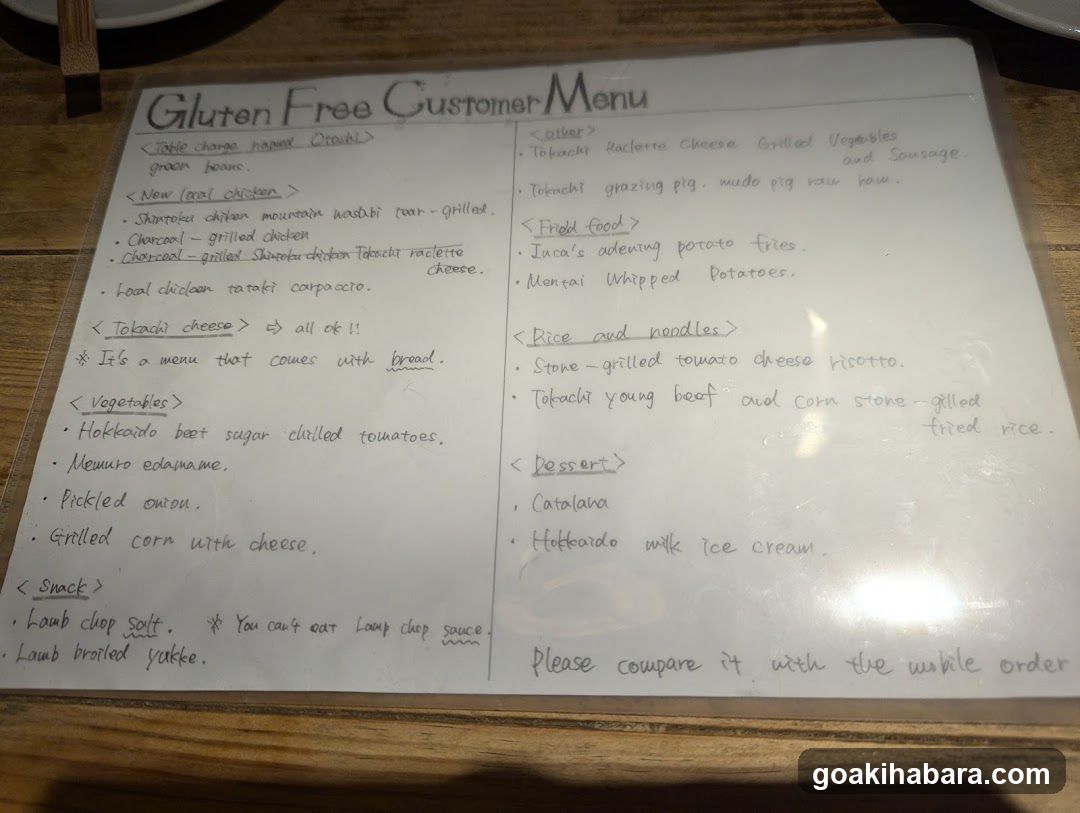 Gluten Free Customer Menu
<Table charge named Otoushi>
green beans.
<New local chicken>
・Shintoku chiken mountain wasabi roar-grilled.
・Charcoal - grilled chicken
・Charcoal - grilled Shintoku chicken Tokachi raclette
cheese.
・Local chicken tataki carpaccio.
<Tokachi cheese> ⇨ all ok !!
※ It's a menu that comes with bread.
<Vegetables>
・Hokkaido beet sugar chilled tomatoes.
・Memuro edamame.
・Pickled onion.
・Grilled corn with cheese.
<Snack>
・Lamb chop salt. ※ You can't eat Lamp chop sauce.
・Lamb broiled yukke.
<other>
・Tokachi Raclette Cheese Grilled Vegetables
and Sausage.
・Tokachi grazing pig. mudo pig raw ham.
<Fridd food>
・Inca's adening potato fries.
・Mentai Whipped Potatoes.
<Rice and noodles>
・Stone - grilled tomato cheese risotto.
・Tokachi young beef and corn stone - gilled
fried rice.
<Dessert>
・Catalana
・Hokkaido milk ice cream.
Please compare it with the mobile order
goakihabara.com